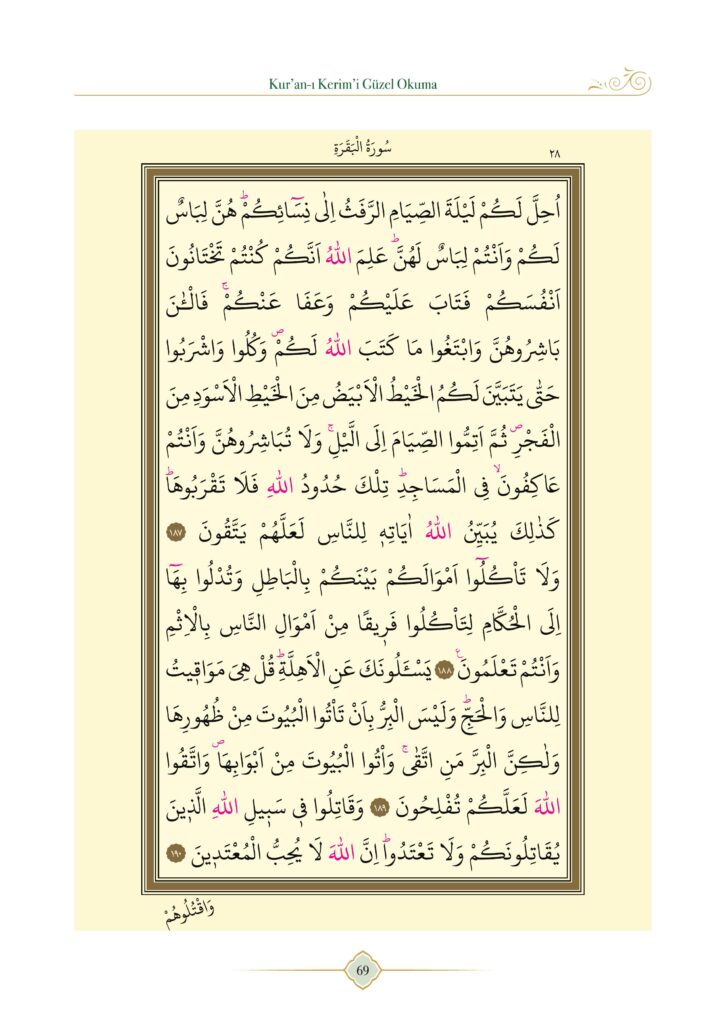 Kur’an-ı Kerim’i Güzel Okuma
سُورَةُ الْبَقَرَةِ
٢٨
اُحِلَّ لَكُمْ لَيْلَةَ الصِّيَامِ الرَّفَثُ اِلٰى نِسَٓائِكُمْۜ هُنَّ لِبَاسٌ
لَكُمْ وَاَنْتُمْ لِبَاسٌ لَهُنَّۜ عَلِمَ اللّٰهُ اَنَّكُمْ كُنْتُمْ تَخْتَانُونَ
اَنْفُسَكُمْ فَتَابَ عَلَيْكُمْ وَعَفَا عَنْكُمْۚ فَالْـٰٔنَ
بَاشِرُوهُنَّ وَابْتَغُوا مَا كَتَبَ اللّٰهُ لَكُمْۖ وَكُلُوا وَاشْرَبُوا
حَتّٰى يَتَبَيَّنَ لَكُمُ الْخَيْطُ الْاَبْيَضُ مِنَ الْخَيْطِ الْاَسْوَدِ مِنَ
الْفَجْرِۖ ثُمَّ اَتِمُّوا الصِّيَامَ اِلَى الَّيْلِۚ وَلَا تُبَاشِرُوهُنَّ وَاَنْتُمْ
عَاكِفُونَۙ فِى الْمَسَاجِدِۜ تِلْكَ حُدُودُ اللّٰهِ فَلَا تَقْرَبُوهَاۜ
كَذٰلِكَ يُبَيِّنُ اللّٰهُ اٰيَاتِه۪ لِلنَّاسِ لَعَلَّهُمْ يَتَّقُونَ ﴿١٨٧﴾
وَلَا تَأْكُلُٓوا اَمْوَالَكُمْ بَيْنَكُمْ بِالْبَاطِلِ وَتُدْلُوا بِهَٓا
اِلَى الْحُكَّامِ لِتَأْكُلُوا فَر۪يقًا مِنْ اَمْوَالِ النَّاسِ بِالْاِثْمِ
وَاَنْتُمْ تَعْلَمُونَ۟ ﴿١٨٨﴾ يَسْـَٔلُونَكَ عَنِ الْاَهِلَّةِۜ قُلْ هِىَ مَوَاق۪يتُ
لِلنَّاسِ وَالْحَجِّۜ وَلَيْسَ الْبِرُّ بِاَنْ تَأْتُوا الْبُيُوتَ مِنْ ظُهُورِهَا
وَلٰكِنَّ الْبِرَّ مَنِ اتَّقٰىۚ وَأْتُوا الْبُيُوتَ مِنْ اَبْوَابِهَاۖ وَاتَّقُوا
اللّٰهَ لَعَلَّكُمْ تُفْلِحُونَ ﴿١٨٩﴾ وَقَاتِلُوا ف۪ى سَب۪يلِ اللّٰهِ الَّذ۪ينَ
يُقَاتِلُونَكُمْ وَلَا تَعْتَدُواۜ اِنَّ اللّٰهَ لَا يُحِبُّ الْمُعْتَد۪ينَ ﴿١٩٠﴾
وَاقْتُلُوهُمْ
69